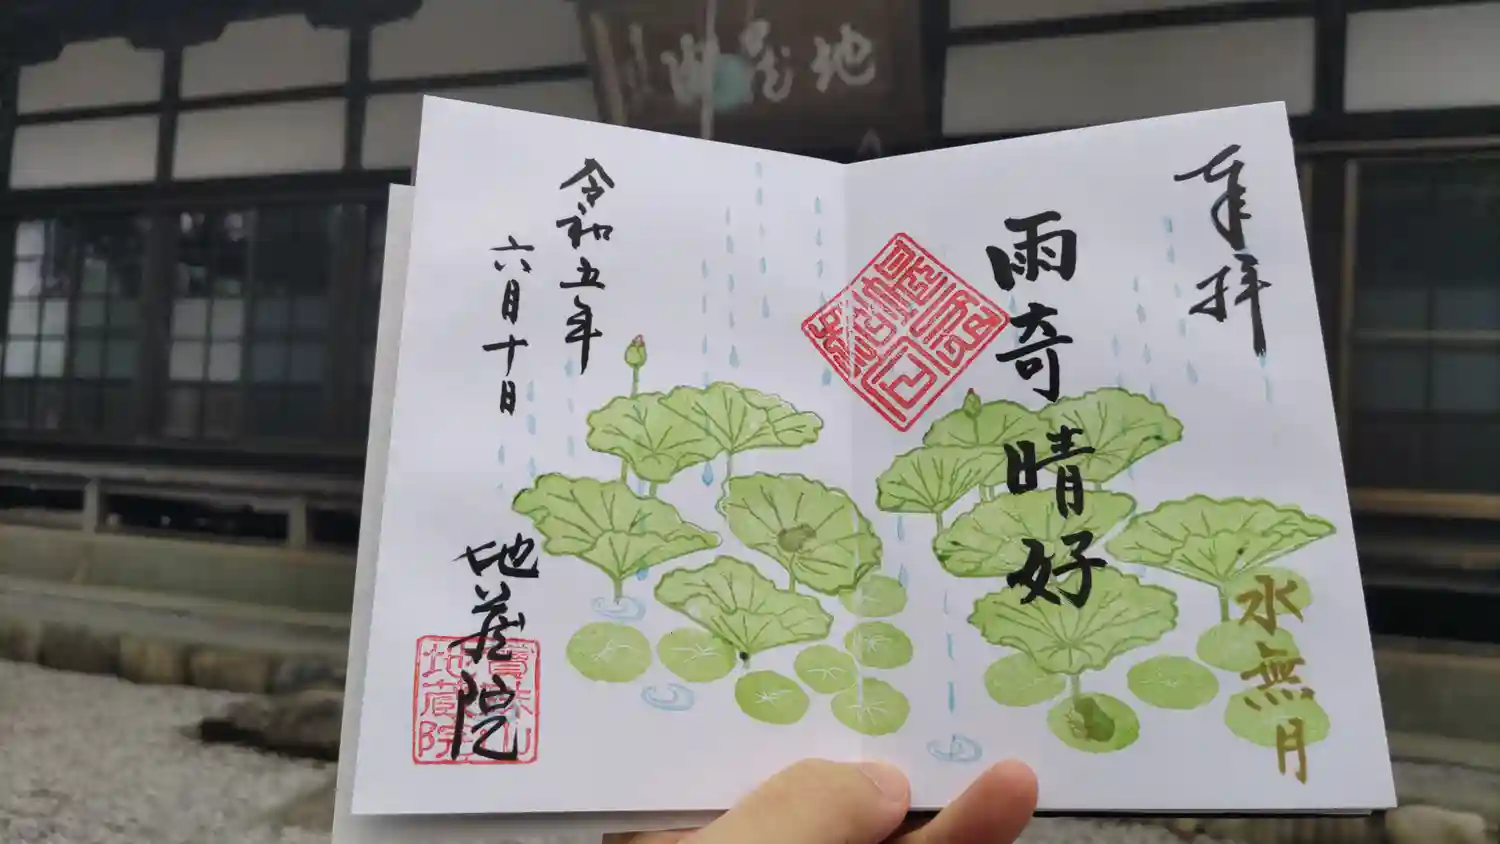 地蔵院
奉拝
雨奇晴好
水無月
令和五年
六月十日
地蔵院
地蔵院